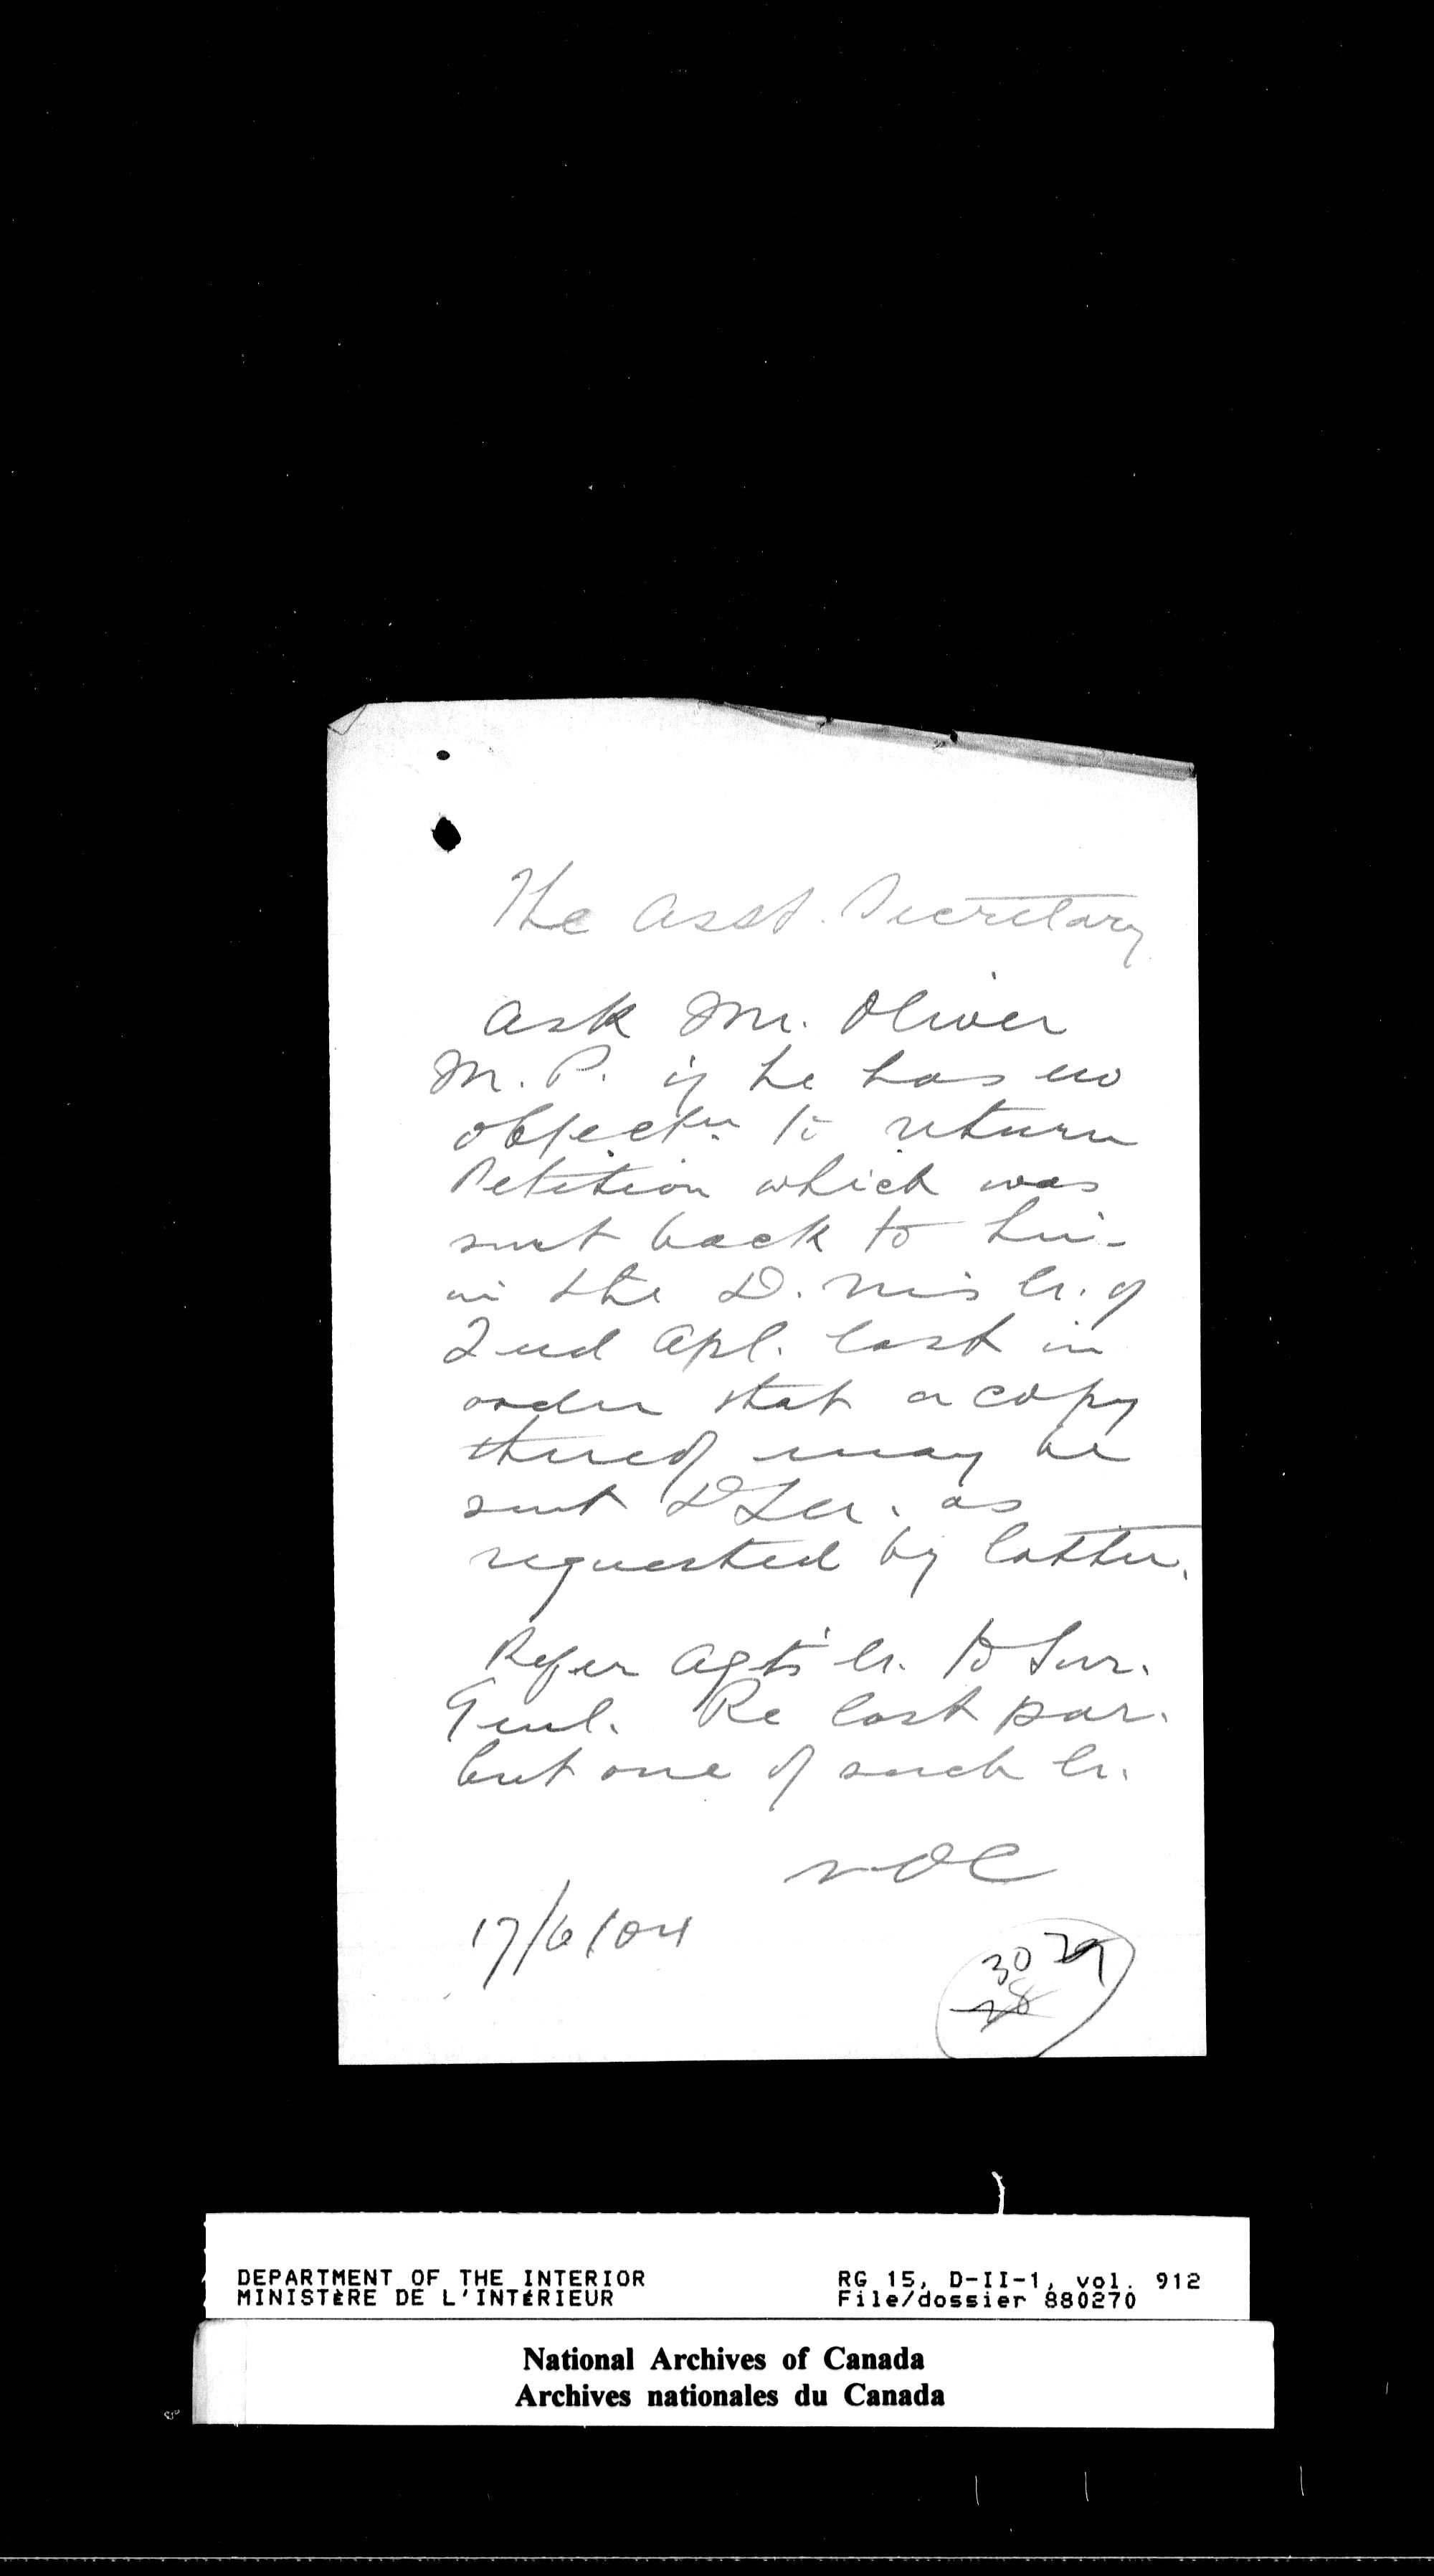 The Asst. Secretary
Ask Mr. Oliver
M. P. if he has no
objectn. to return
Petition which was
sent back to him
in the D. M's lr. of
2nd Apl. last in
order that a copy
thereof may be
sent as
requested by latter.
Refer Agt's lr. to Sur.
Genl. Re last par.
but one of such lr.
17/6/04
30 29
28
DEPARTMENT OF THE INTERIOR
MINISTÈRE DE L'INTÉRIEUR
RG 15, D-II-1, vol. 912
File/dossier 880270
National Archives of Canada
Archives nationales du Canada